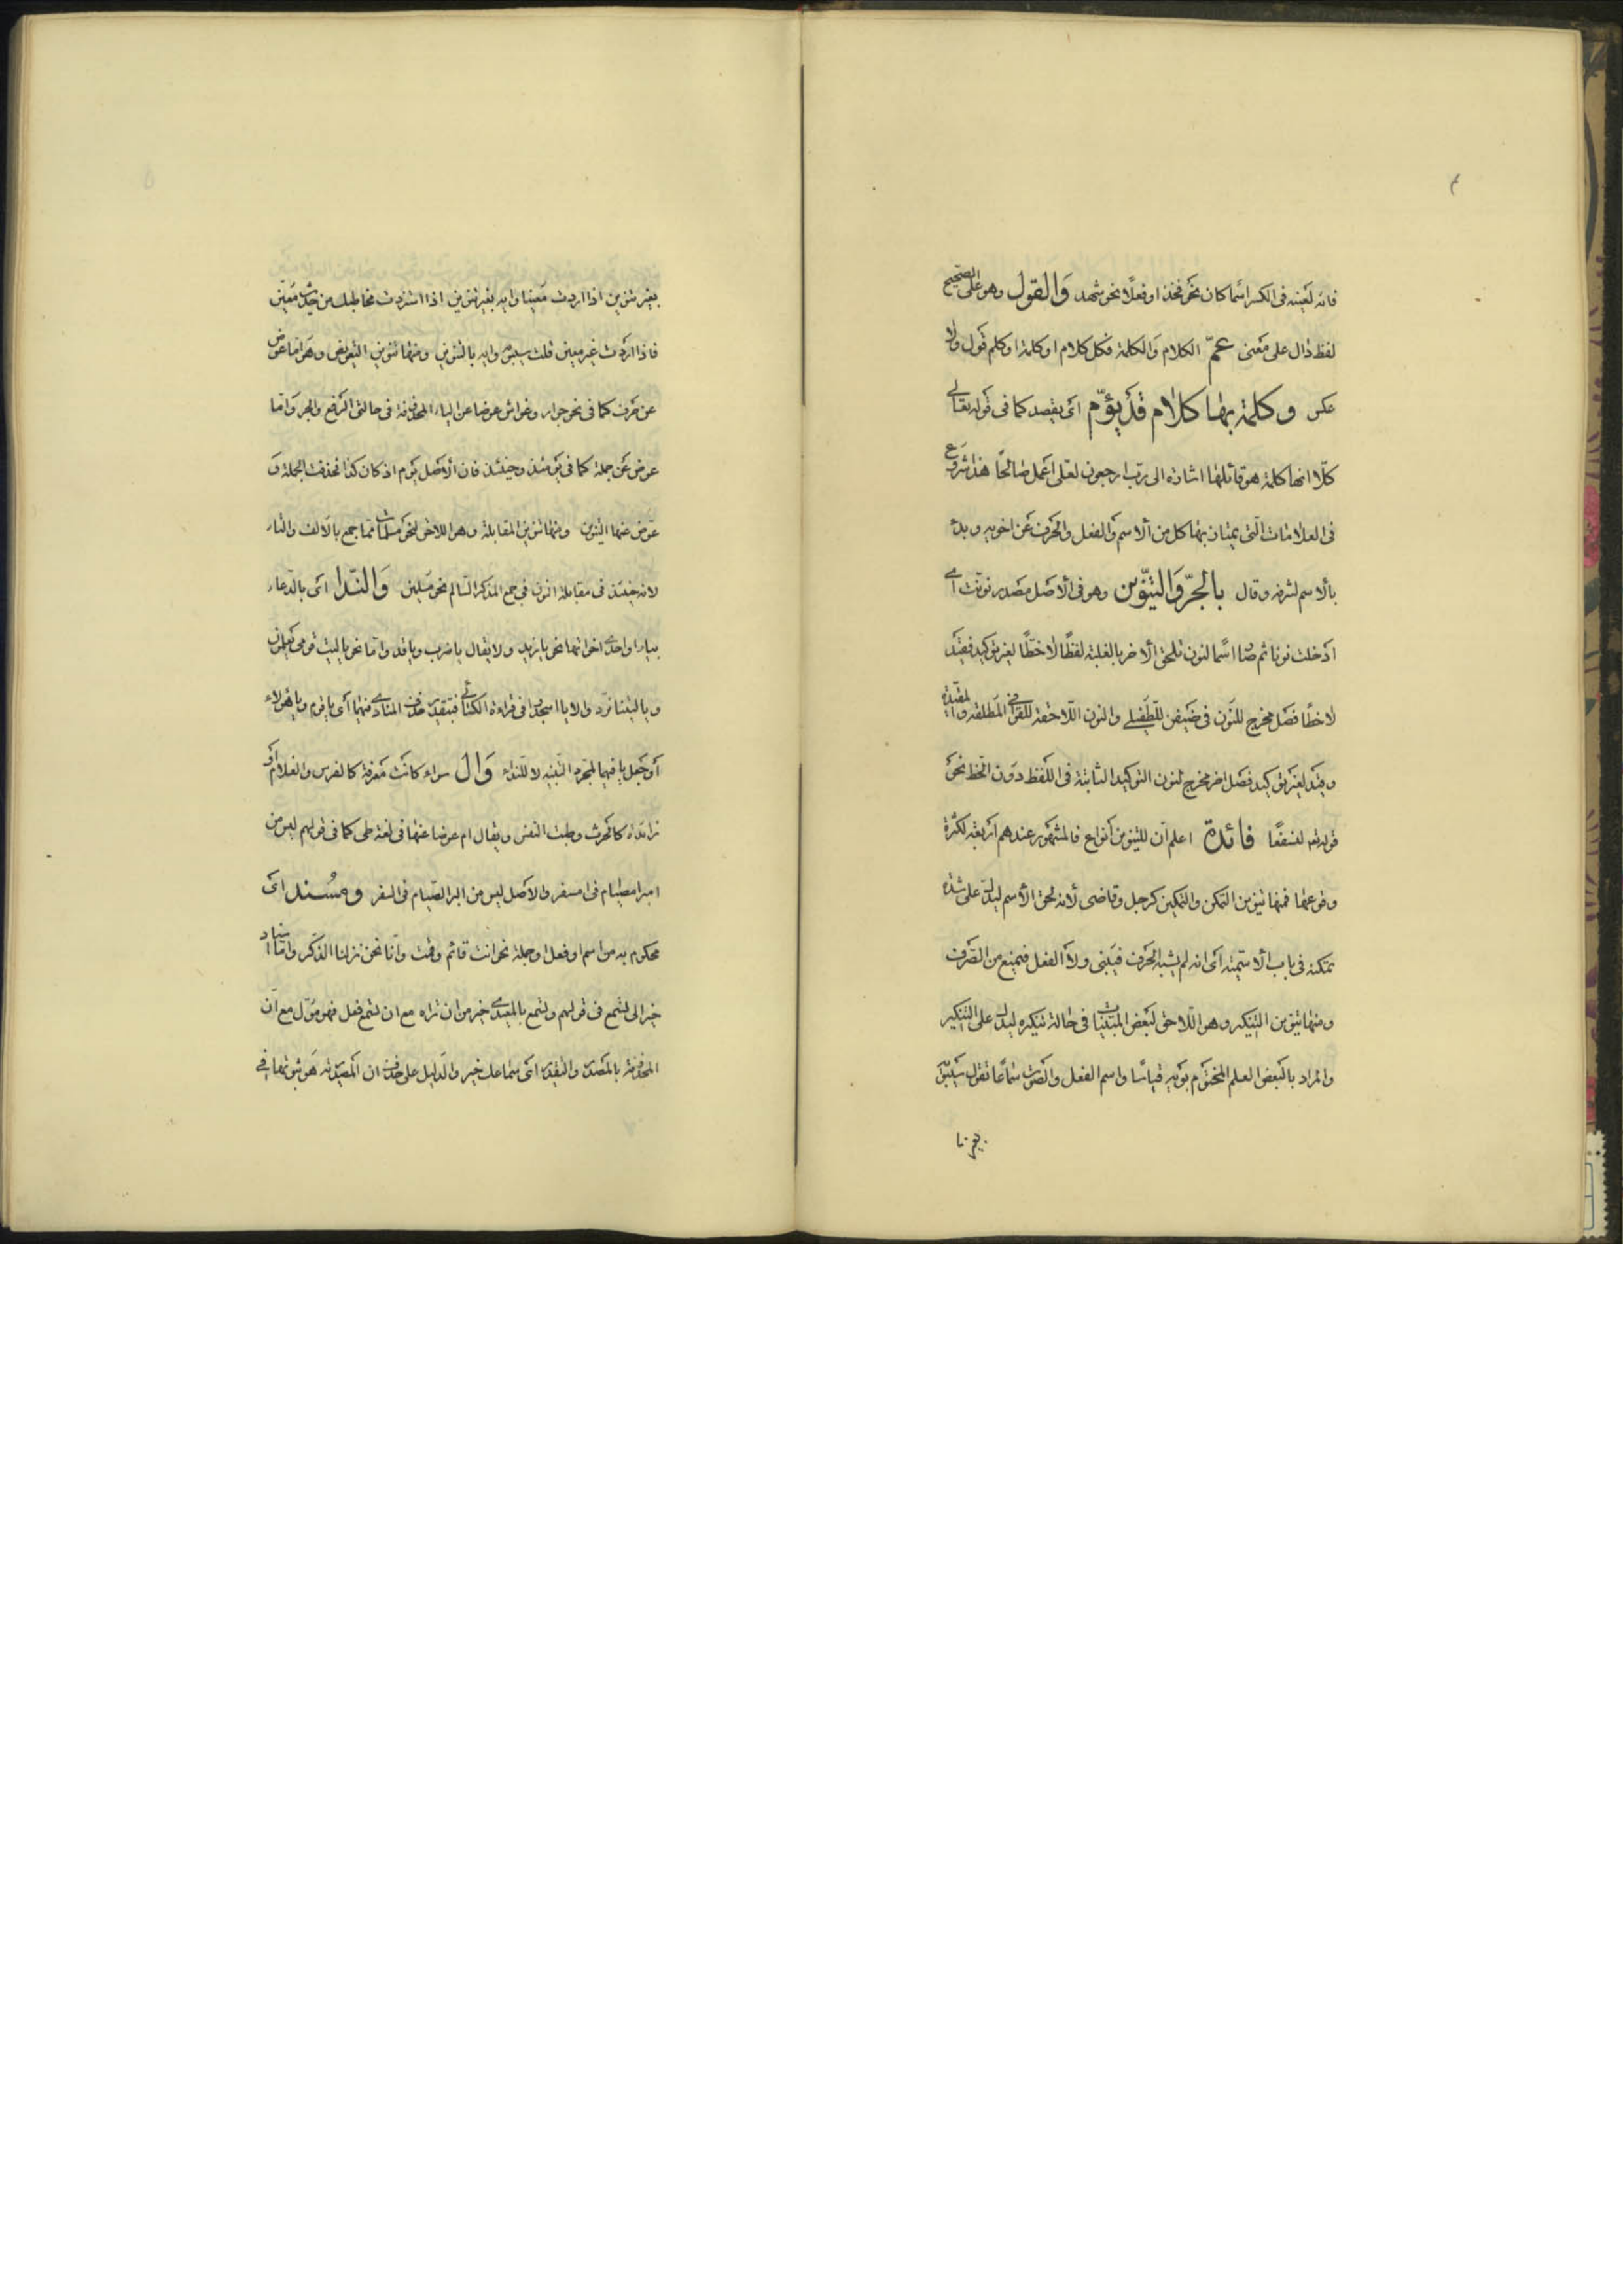 فائه لعينه فى الكسر اسما كان نحو فخذ او فعلا نحو شهد وَالقول وهو على الصّحيح
لفظ دال على مَعنى عمّ الكلام وَالكلمة فكل كلام او كلمة او كلم قول ولا
عكس وكلمة بها كلام قد يؤمّ اى يقصد كما فى قوله تعالى
كلّا انها كلمة هو قائلها اشارة الى رب ارجعون لعلى اعمل صالحًا هذا شروع
فى العلامات الّتى يمتاز بها كل من الاسم والفعل والحرف عن اخويه وبدء
بالاسم لشرفه وقال بالجرّ وَالتنّوين وهو فى الاصل مصدر نونت اى
ادخلت نونا ثم صار اسما لنون تلحق الاخر بالغلبة لفظًا لا خطّا لغير توكيد فقيد
لا خطّا فصل مخرج للنّون فى ضيفن للطفيلى والنون اللاحقة للقوافى المطلقة والمقيدة
وقيد لغير توكيد فصل اخر مخرج لنون التوكيد الثابتة فى اللفظ دون الخط نحو
قوله تعه لنسفعًا فائدة اعلم انّ للتنوين أنواع فالمشهور عندهم اربعة لكثرة
وقوعها فمنها تنوين التمكن والتمكين كرجل وقاضى لانه لحق الاسم ليدل على شدة
تمكنه فى باب الاسمية اى انه لم يشبه الحرف فيبنى ولا الفعل فيمنع من الصّرف
ومنها تنوين التنكير وهو اللّاحق لبعض المبنيات فى حالة تنكيره ليدل على التنكير
والمراد بالبعض العلم المختوم بويه قياسًا واسم الفعل والصّوت سماعًا تقول سيبويه
بغير تنوين اذا اردت معينا وايه بغير تنوين اذا استزدت مخاطبك من حديث معين
فاذا اردت غير معين قلت سيبويه وايه بالتنوين ومنها تنوين التعويض وهو اما عوض
عن حرف كما فى نحو جوار وغواش عوضا عن الياء المحذوفة فى حالتى الرفع والجر وامّا
عوض عن جملة كما فى يومئذ وحينئذ فان الاصل يوم اذ كان كذا فحذفت الجملة و
عوض عنها التنوين ومنها تنوين المقابلة وهو اللاحق لنحو مسلمات مما جمع بالالف والتاء
لانه حينئذ فى مقابلة النون فى جمع المذكر السّالم نحو مسلمين وَالنّدا اى بالدّعاء
بيا او احدى اخواتها نحو يا زيد ولا يقال يا ضرب ويا قد وامّا نحو يا ليت قومى يعلمون
ويا ليتنا نرد والا يا اسجدوا فى قراءة الكسائى فبتقدير حذف المنادى فيها اى يا قوم ويا هؤلاء
أو جعل يا فيها لمجرد التّنبيه لا للنداء وَال سواء كانت معرفة كالفرس والغلام او
زائدة كالحرث وطبت النفس ويقال ام عوضا عنها فى لغة طى كما فى قولهم ليس من
امبر امصيام فى امسفر والاصل ليس من البر الصّيام فى السفر ومسُند اى
محكوم به من اسم او فعل او جملة نحو انت قائم وقمت وانّا نحن نزلنا الذّكر وامّا اسناد
خير الى تسمع فى قولهم وتسمع بالمعيدى خير من ان تراه مع ان تسمع فعل فهو مؤل مع ان
المحذوفة بالمصدر والتقدير اى سماعك خير والدليل على حذف ان المصدرية هو ثبوتها فى
بغير تنا